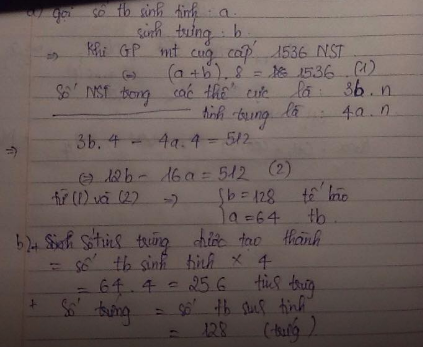 a) gọi số tb sinh tinh : a.
sinh trứng : b
⇒ Khi GP mt cug cấp 1536 NST
⇔ (a+b) . 8 = 1536 . (1)
Số NST trong các thể cực là : 3b . n
tinh trung là : 4a . n
⇒ 3b . 4 - 4a . 4 = 512
⇔ 12b - 16a = 512 (2)
từ (1) và (2) ⇒ { b = 128 tế bào
a = 64 tb .
b) + Số tinh trùng được tạo thành
= số tb sinh tinh × 4
= 64 . 4 = 256 tinh trùg
+ Số trứng = số tb sinh tinh
= 128 (trứg)